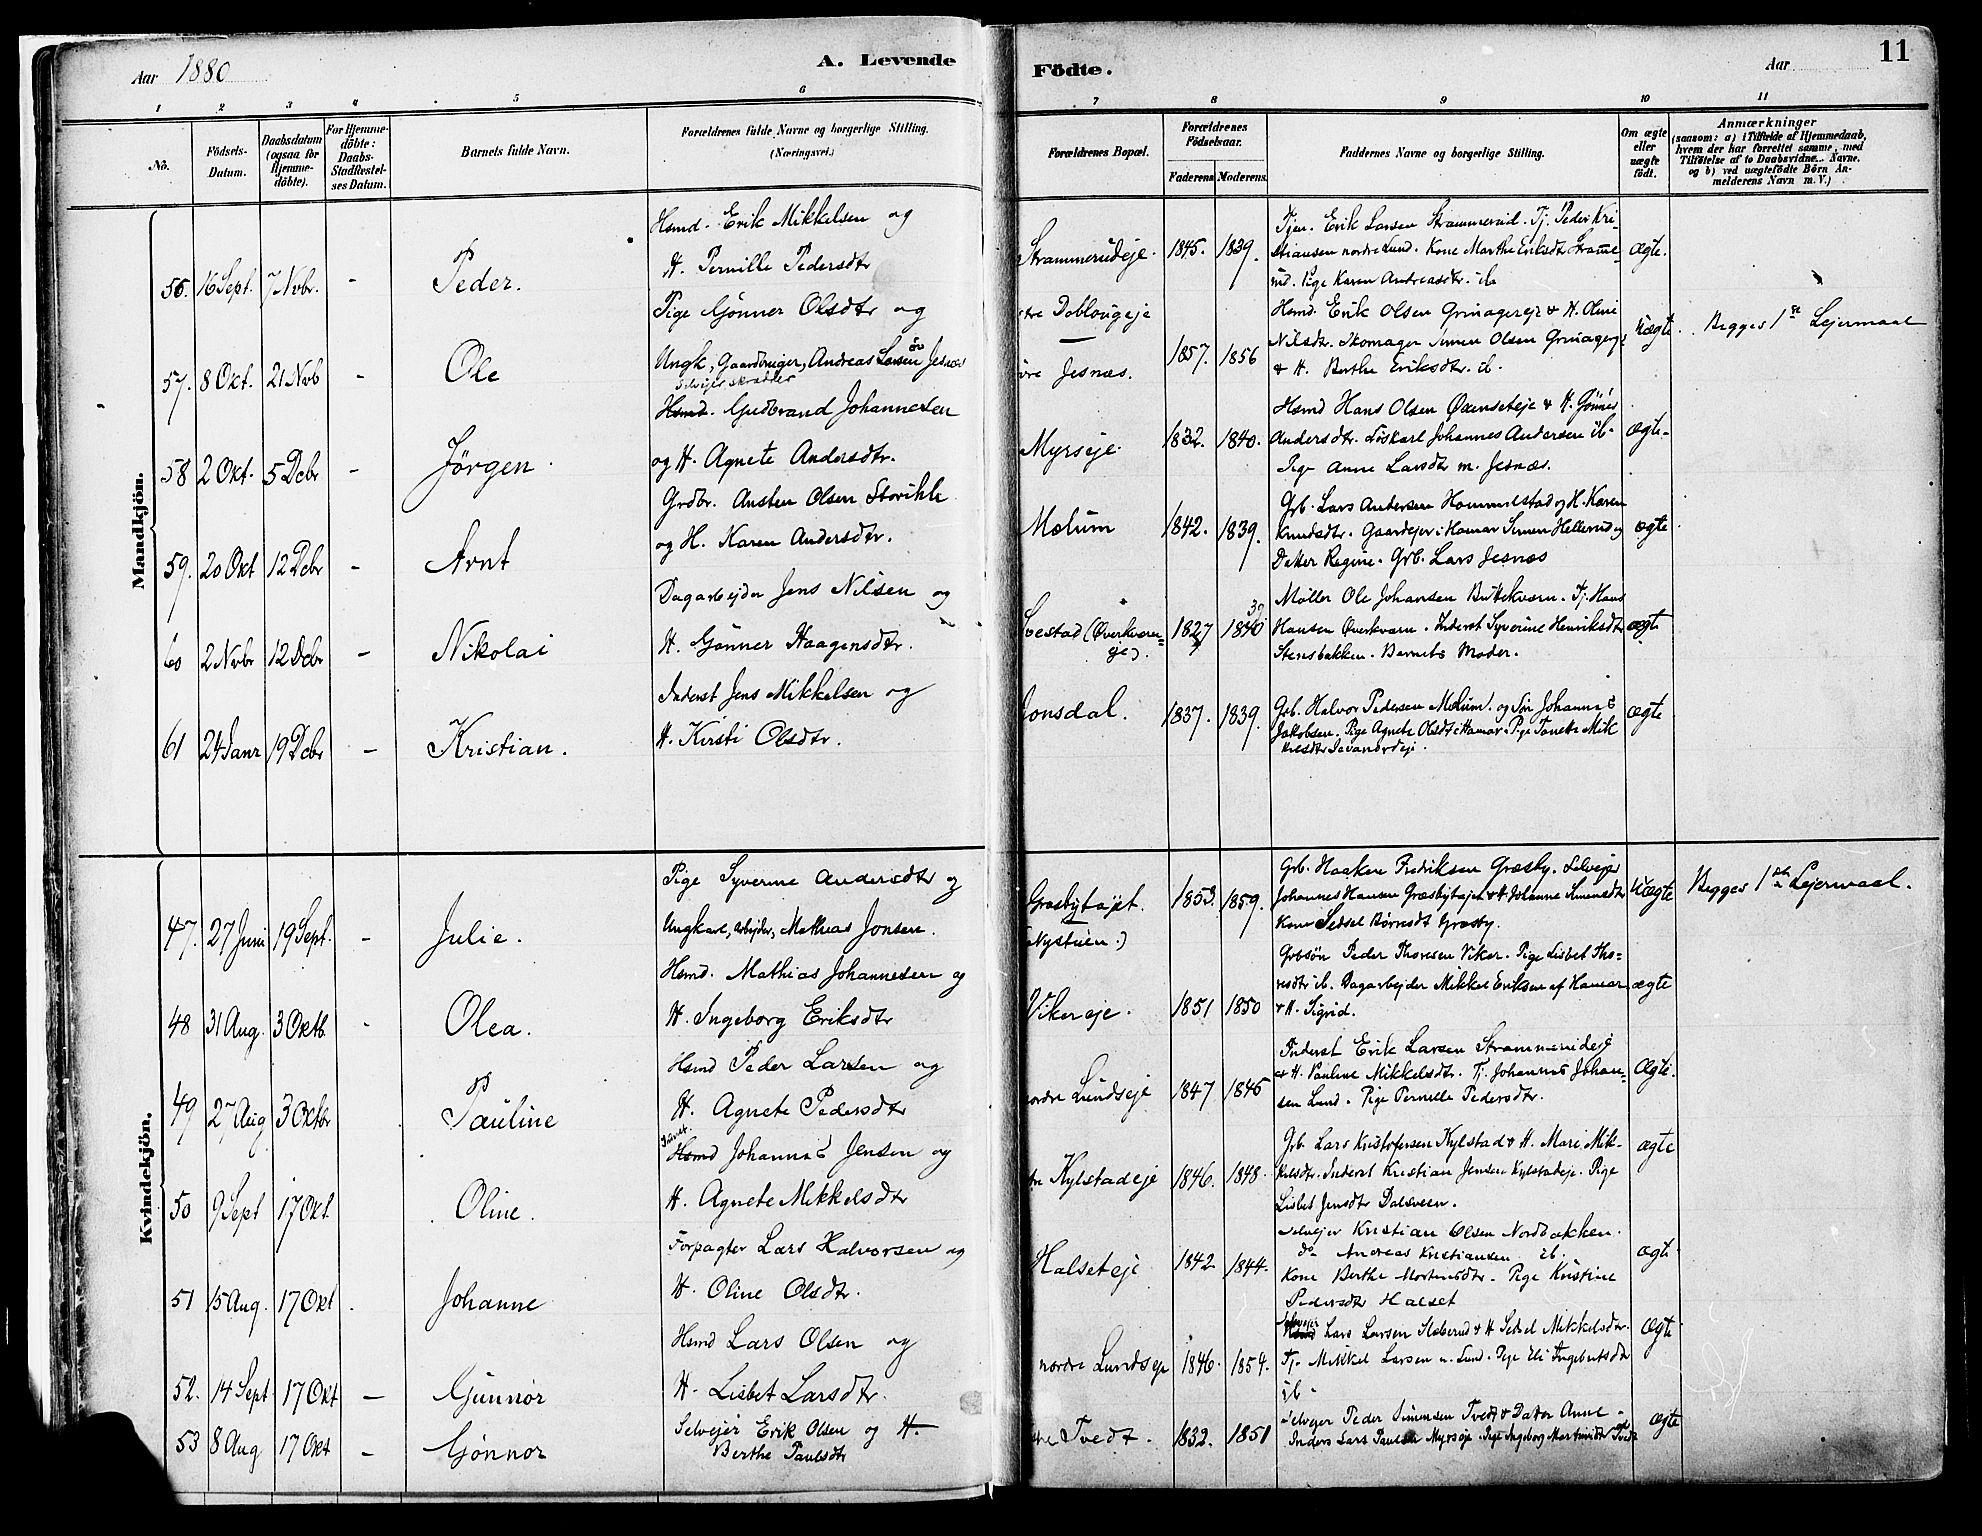 Aar 1880
A. Levende
Födte.
Aar
11
1 2 3 4 5 6 7 8 9 10 11
No.
Födsels-
Datum.
Daabsdatum
(ogsaa for
Hjemme-
döbte).
For Hjemme-
döbte:
Daabs-
Stadfæstel-
ses Datum.
Barnets fulde Navn.
Forældrenes fulde Navne og borgerlige Stilling.
(Næringsvei.)
Forældrenes Bopæl.
Forældrenes
Födselsaar.
Faderens. Moderens.
Faddernes Navne og borgerlige Stilling.
Om ægte
eller
uægte
födt.
Anmærkninger
(saasom: a) i Tilfælde af Hjemmedaab,
hvem der har forrettet samme, med
Tilföielse af to Daabsvidne.. Navne.
og b) ved uægtefödte Börn An-
melderens Navn m. V.)
Mandkjön.
56. 16 Sept. 7 Nvbr. - Peder.
Hsmd. Erik Mikkelsen og
H. Pernille Pedersdtr
Strammerudeje. 1845. 1839.
Tjen. Erik Larsen Strammerud. Tj. Peder Kri-
stiansen nordre Lund. Kone Marthe Eriksdtr Stramme-
rud. Pige Karen Andreasdtr. ib
ægte.
57. 8 Okt. 21 Nvb - Ole
Pige Gönner Olsdtr og
Ungk, Gaardbruger, Andreas Larsen öv Jesnæs
stre Doblougeje
övre Jesnæs. 1857. 1856
Hsmd. Erik Olsen Grinagereje & H. Oline
Nilsdtr. Skomager Simen Olsen Grinagereje
& H. Berthe Eriksdtr. ib.
Uægte. Begges 1ste Lejermaal
58 2 Okt. 5 Dcbr - Jörgen.
Selvejer skrædder
Hsmd. Gudbrand Johannesen
og H. Agnete Andersdtr.
Myrseje. 1832. 1840.
Hsmd Hans Olsen Oxenseteje & H. Gönner
Andersdtr. Löskarl Johannes Andersen ib.
Pige Anne Larsdtr m. Jesnæs.
ægte.
59. 20 Okt 12 Dcbr - Arnt
Grdbr. Austen Olsen Storihle
og H. Karen Andersdtr.
Mælum 1842. 1839.
Grb. Lars Andersen Hommelstad og H. Karen
Knudsdtr. Gaardejer i Hamar Simen Hellerud og
Datter Regine. Grb. Lars Jesnæs
ægte
60 2 Nvbr 12 Dcbr - Nikolai
Dagarbejder Jens Nilsen og
H. Gönner Haagensdtr.
Svestad (Överkværn-
eje). 1827 1840 39
Möller Ole Johansen Buttekværn. Tj. Hans
Hansen Överkværn. Inderst Syverine Henriksdtr
Stensbakken. Barnets Moder.
ægte
61 24 Janr 19 Dcbr - Kristian.
Inderst Jens Mikkelsen og
H. Kirsti Olsdtr.
Jonsdal. 1837. 1839.
Grb. Halvor Pedersen Mælum. og Sön Johannes
Jakobsen. Pige Agnete Olsdtr i Hamar. Pige Tonette Mik
kelsdtr
ægte
Kvindekjön.
47. 27 Juni 19 Sept. - Julie.
Pige Syverine Andersdtr og
Ungkarl, arbejder, Mathias Jonsen.
Græsbytajet.
(Nystuen.) 1853. 1859.
Grb. Haaken Fredriksen Græsby. Selvejer
Johannes Hansen Græsbytajet & H. Johanne Simensdtr
Kone Sedsel Börresdt Græsby.
Uægte Begges 1ste Lejermaal.
48 31 Aug. 3 Oktb. - Olea.
Hsmd. Mathias Johannesen og
H. Ingeborg Eriksdtr
Vikereje. 1851 1850
Grbsön Peder Thoresen Viker. Pige Lisbet Tho-
resdtr ib. Dagarbejder Mikkel Eriksen af Hamar
& H. Sigrid.
ægte
49 27 Aug 3 Oktbr Pauline
Hsmd Peder Larsen og
H. Agnete Pedersdtr
nordre Lundseje 1847 1845
Inderst Erik Larsen Strammerudeje
& H. Pauline Mikkelsdtr. Tj. Johannes Johan-
sen Lund. Pige Pernille Pedersdtr.
Ægte.
50 9 Sept 17 Okt. Oline.
Hsmd Johannes Jensen og
H. Agnete Mikkelsdtr
Kylstadeje 1846. 1848.
Grb. Lars Kristofersen Kylstad & H. Mari Mik-
kelsdtr. Inderst Kristian Jensen Kylstadeje. Pige
Lisbet Jensdtr Dalsveen.
ægte
51 15 Aug. 17 Okt. Johanne
Forpagter Lars Halvorsen og
H. Oline Olsdtr.
Halseteje 1842 1844.
Selvejer Kristian Olsen Nordbakken.
do Andreas Kristiansen ib.
Kone Berthe Mortensdtr. Pige Kristine
Pedersdtr Halset
ægte
52. 14 Sept 17 Okt - Gunnor
Hsmd Lars Olsen og
H. Lisbet Larsdtr.
nordre Lundseje 1846. 1854.
Selvejer
Hsmd Lars Larsen Sleberud & H Sedsel Mikkelsdtr.
Tj. Mikkel Larsen n. Lund. Pige Eli Ingebretsdtr
ib.
Ægte
53 8 Aug 17 Okt - Gönnor
Selvejer Erik Olsen og H.
Berthe Paulsdtr
Tvedt. 1832. 1851
Selvejer Peder Simensen Tvedt & Datter Anne.
Inders Lars Paulsen Myrseje. Pige Ingeborg Martinsdtr Tvedt
ægte